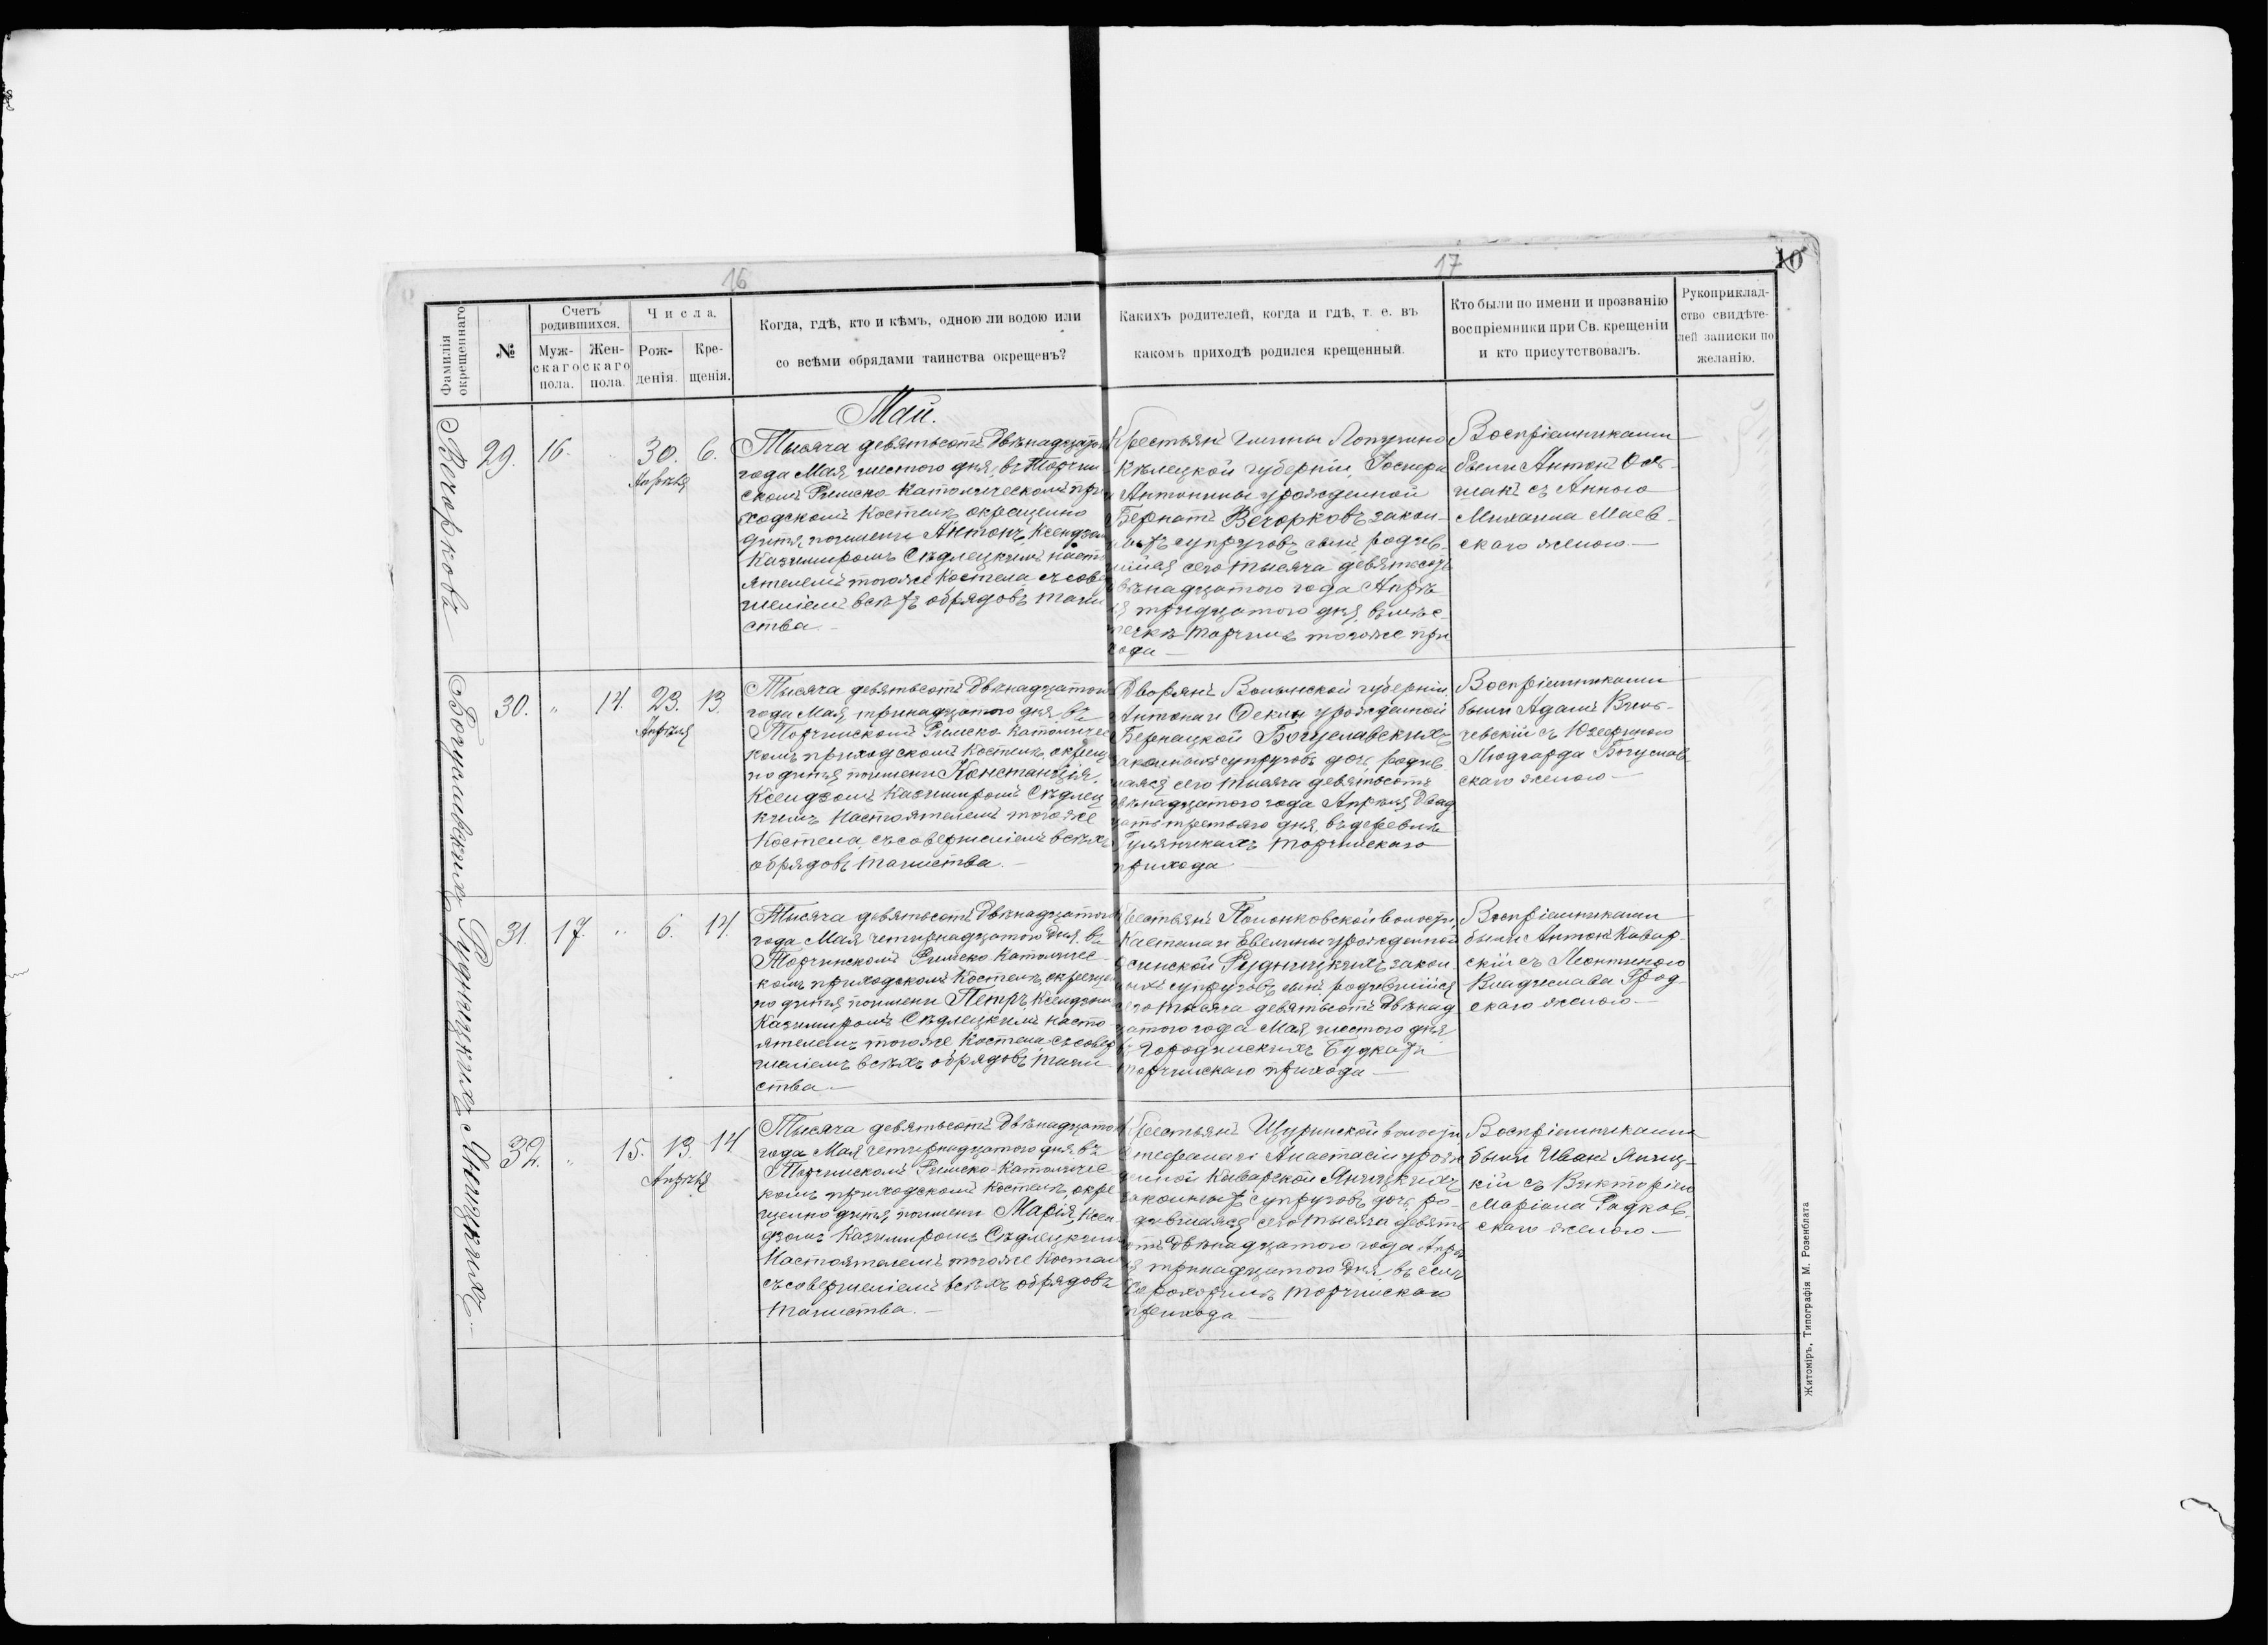 16
17
10
Фамилія окрещеннаго
№
Счетъ родившихся.
Муж-
скаго
пола.
Жен-
скаго
пола.
Числа.
Рож-
денія.
Кре-
щенія.
Когда, гдѣ, кто и кѣмъ, одною ли водою или
со всѣми обрядами таинства окрещенъ?
Какихъ родителей, когда и гдѣ, т. е. въ
какомъ приходѣ родился крещенный.
Кто были по имени и прозванію
воспріемники при Св. крещеніи
и кто присутствовалъ.
Рукоприклад-
ство свидѣте-
лей записки по
желанію.
Май.
Вечорковъ
29. 16. 30. 6.
Апрѣля
Тысяча девятьсотъ Двѣнадцатаго
года Мая шестого дня, въ Торчин
скомъ Римско Католическомъ при
ходскомъ Костелѣ, окрещено
дитя, поимени Антонъ, Ксендзомъ
Казимиромъ Сѣдлецкимъ насто
ятелемъ тогоже Костела, съ совер
шеніемъ всѣхъ обрядовъ таин
ства.
Крестьянъ Гмины
Кѣлецкой губерніи,
и Антонины урожденной
Бернатъ Вечорковъ закон-
ныхъ супруговъ сынъ, родив-
шійся сего тысяча девятьсотъ
двѣнадцатого года Апрѣ
ля тридцатого дня, въ мѣс-
течкѣ Торчинѣ тогоже при
хода
Воспріемниками
были Антонъ
съ Анною
Михаила Маев-
скаго женою.
Богуславскихъ
30. " 14. 23. 13.
Апрѣля
Тысяча девятьсотъ Двѣнадцатого
года Мая тринадцатого дня, въ
Торчинскомъ Римско Католичес
комъ приходскомъ Костелѣ, окрещ
но дитя, поимени Констанція,
Ксендзомъ Казимиромъ Сѣдлец
кимъ Настоятелемъ тогоже
Костела, съ совершеніемъ всѣхъ
обрядовъ таинства.
Дворянъ Волынской губерніи,
Антона и Феклы урожденной
Бернацкой Богуславскихъ
законныхъ супруговъ дочь, родив
шаяся сего тысяча девятьсотъ
двѣнадцатого года Апрѣля Двад
цать третьяго дня, въ деревнѣ
Гуляникахъ Торчинскаго
прихода
Воспріемниками
были Адамъ
съ Юзефиною
Людгарда Богуслав
скаго женою
Рудницкихъ
31. 17. " 6. 14.
Тысяча девятьсотъ Двѣнадцатого
года Мая четырнадцатого Дня, въ
Торчинскомъ Римско Католичес-
комъ приходскомъ Костелѣ, окрещен
но дитя, поимени Петръ, Ксендзомъ
Казимиромъ Сѣдлецкимъ насто
ятелемъ тогоже Костела, съ совер
шеніемъ всѣхъ обрядовъ таин-
ства.
Крестьянъ Полонковской волости,
и Евелины урожденной
Рудницкихъ закон-
ныхъ супруговъ сынъ, родившійся
сего тысяча девятьсотъ Двѣнад
цатого года Мая шестого дня,
въ Городинскихъ Будкахъ
Торчинскаго прихода
Воспріемниками
были Антонъ Кавар-
скій съ Леонтиною
Владислава Грод-
скаго женою
Яницкихъ
32. " 15. 13. 14
Апрѣля
Тысяча девятьсотъ Двѣнадцатого
года Мая четырнадцатого дня въ
Торчинскомъ Римско-Католичес
комъ приходскомъ Костелѣ, окре
щено дитя, поимени Марія, Ксен-
дзомъ Казимиромъ Сѣдлецкимъ
Настоятелемъ тогоже Костела
съ совершеніемъ всѣхъ обрядовъ
таинства.
Крестьянъ Щуринской волости,
Стефана и Анастасіи урож
денной Каварской Яницкихъ
законныхъ супруговъ дочь, ро-
дившаяся сего тысяча девять
сотъ Двѣнадцатого года Апрѣ
ля тринадцатого Дня, въ селѣ
Торчинскаго
прихода
Воспріемниками
были Иванъ Яниц-
кій съ Викторіею
Маріана Радков-
скаго женою
Житоміръ, Типографія М. Розенблата